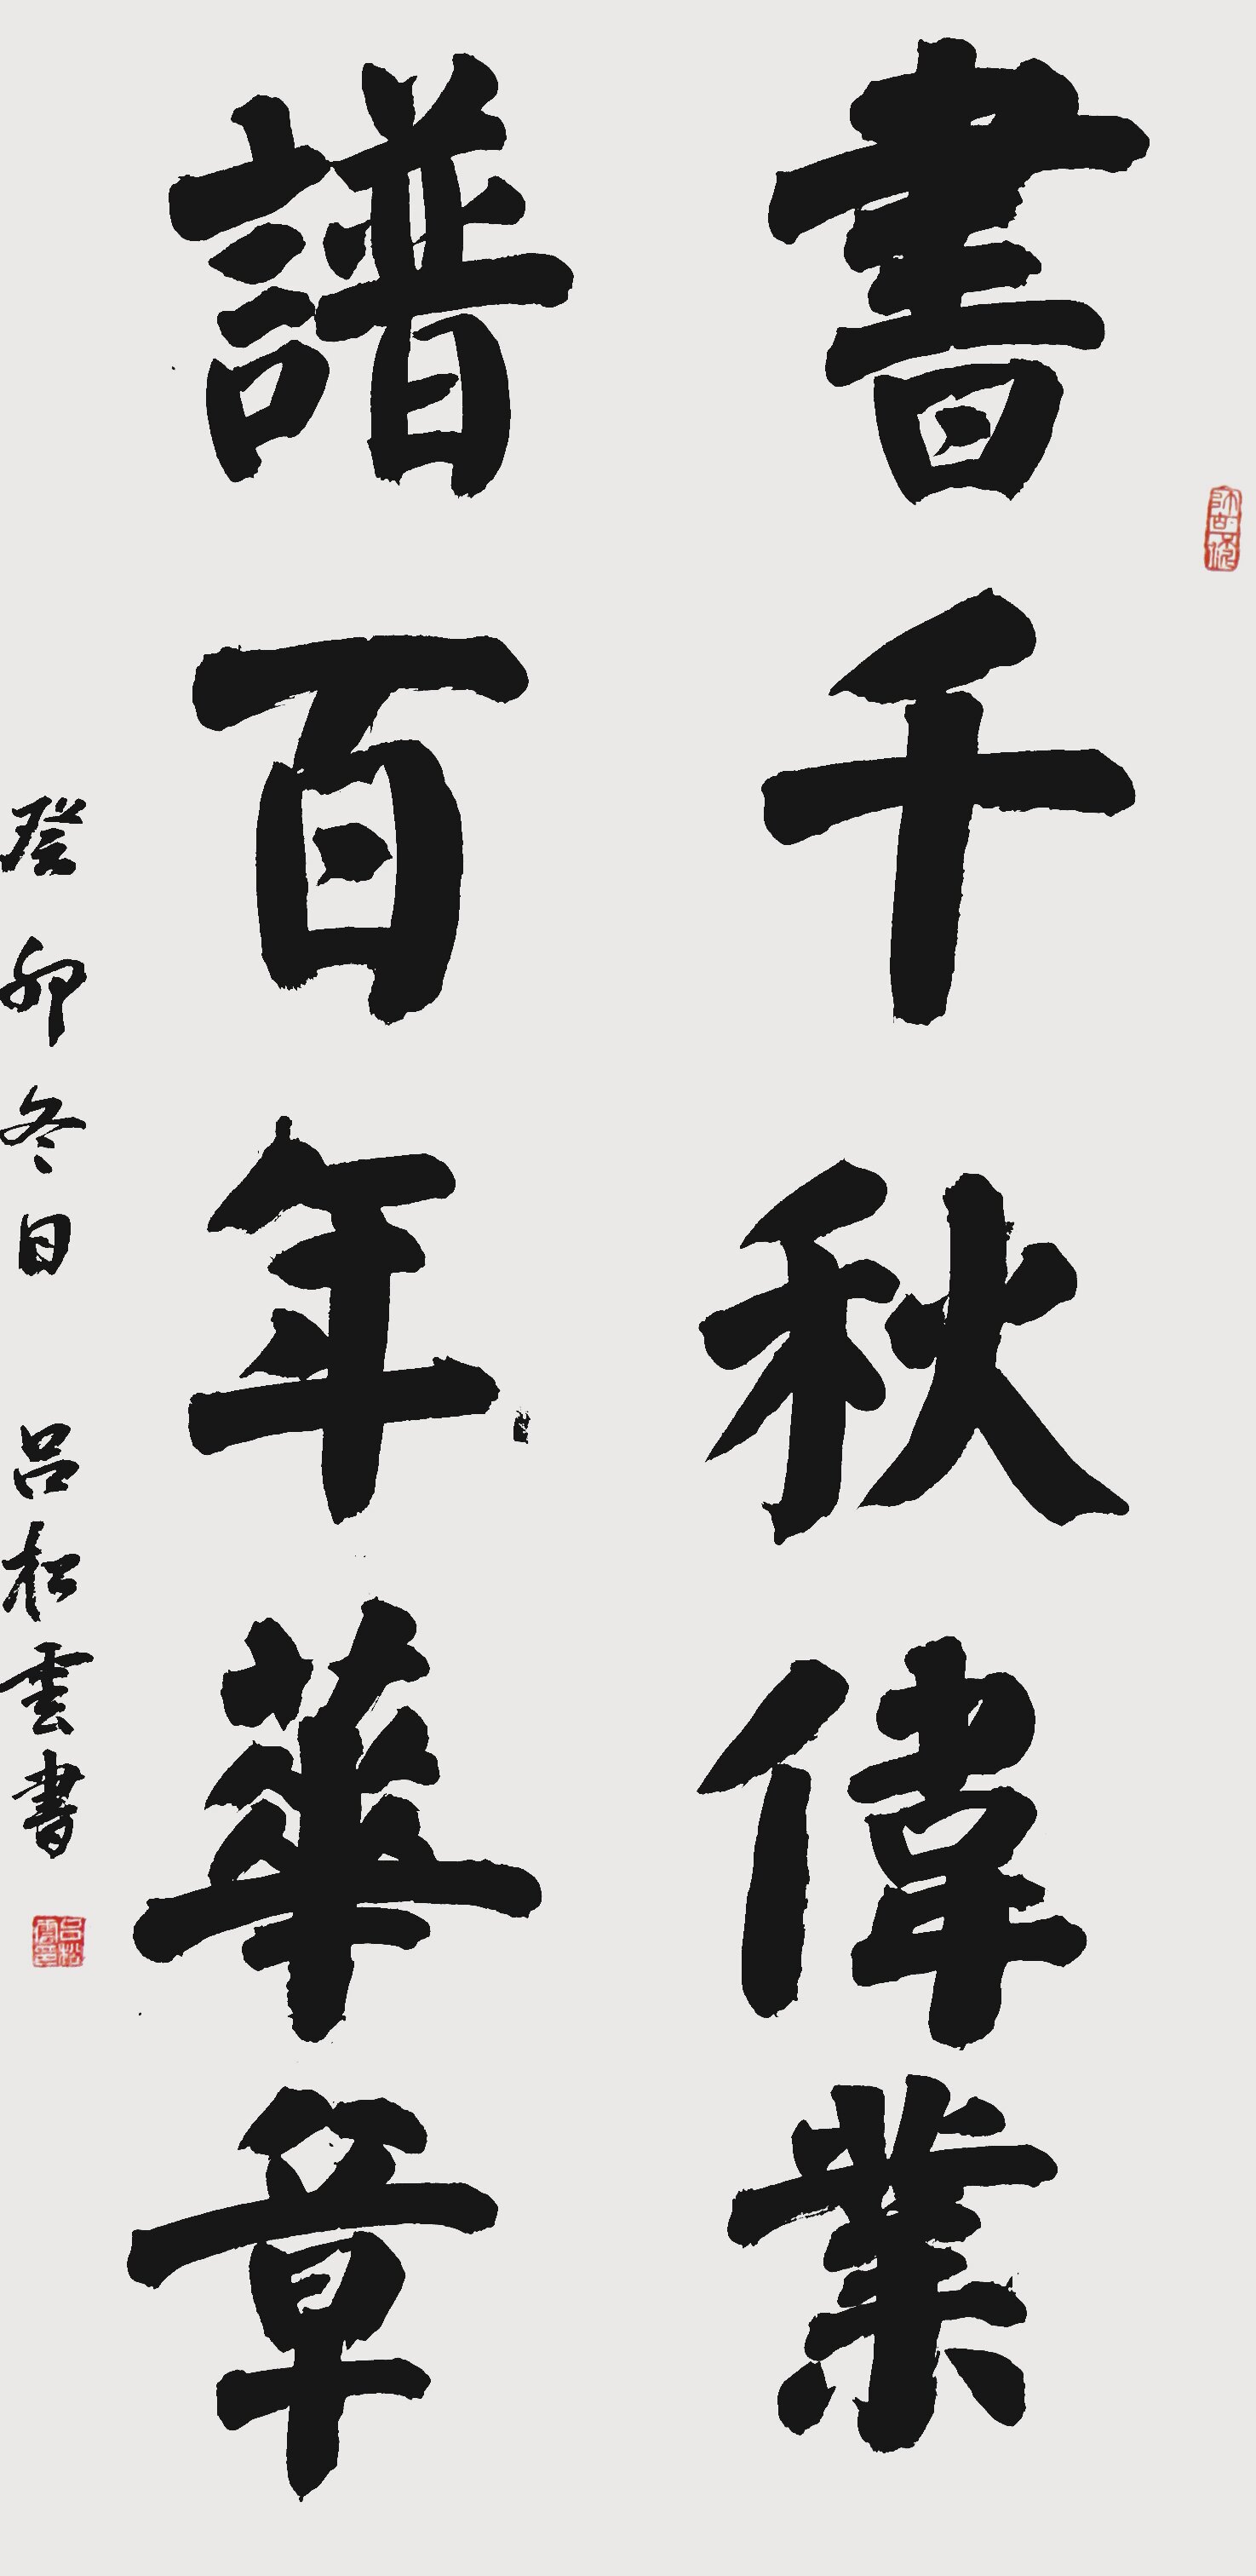 書千秋偉業
譜百年華章
癸卯冬日 呂松雲書
呂松雲印